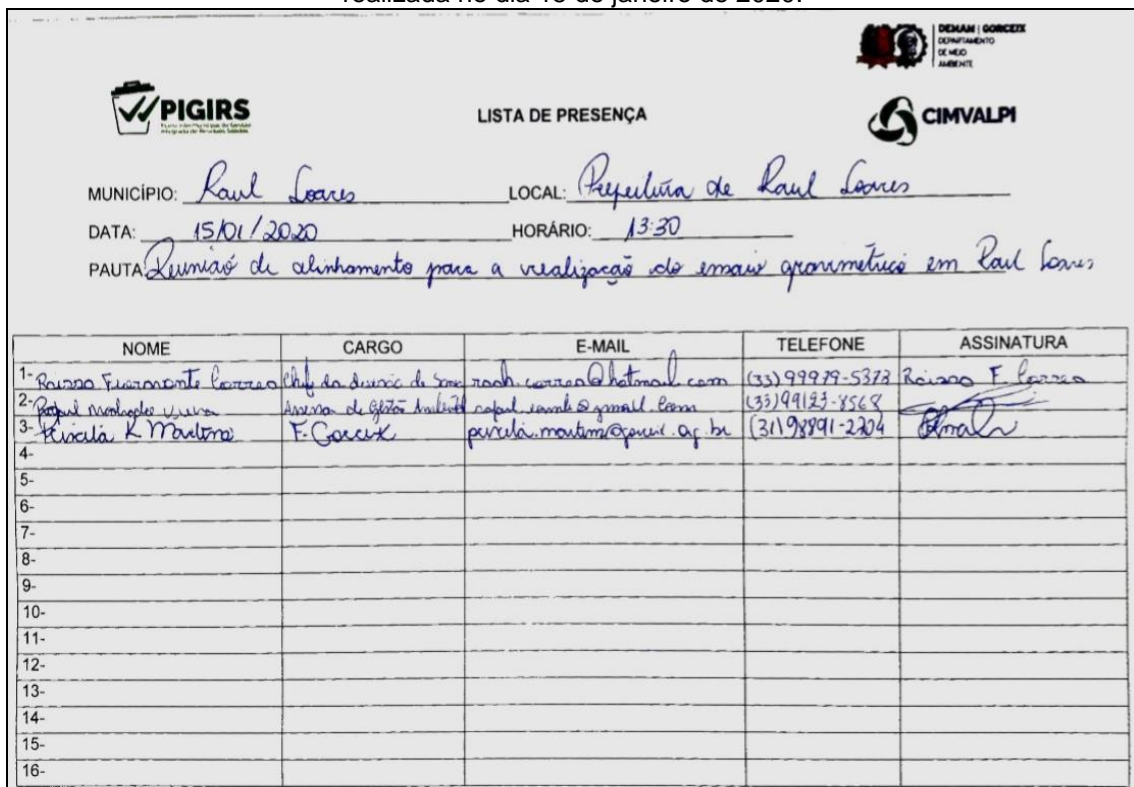 realizada no dia 15 de janeiro de 2020.
DEMAM | GORCEIX
DEPARTAMENTO
DE MEIO
AMBIENTE
PIGIRS
LISTA DE PRESENÇA
CIMVALPI
MUNICÍPIO: Raul Soares LOCAL: Prefeitura de Raul Soares
DATA: 15/01/2020 HORÁRIO: 13:30
PAUTA: Reunião de alinhamento para a realização do ensaio gravimétrico em Raul Soares
NOME CARGO E-MAIL TELEFONE ASSINATURA
1- Correa Chefe da de @hotmail.com (33) 99979-5373 F. Correa
2- Rafael Vieira de Gestão Ambiental @gmail.com (33) 99123-8568
3- Priscila K Martins F. Gorceix (31) 98891-2704
4-
5-
6-
7-
8-
9-
10-
11-
12-
13-
14-
15-
16-